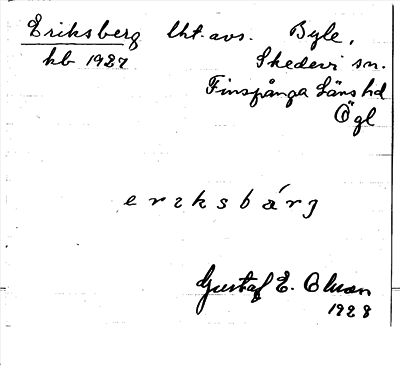 Eriksberg lht. avs. Byle,
kb 1927 Skedevi sn.
Finspånga Läns hd
Ögl
erıksbárg
Gustaf E. Oluan
1928